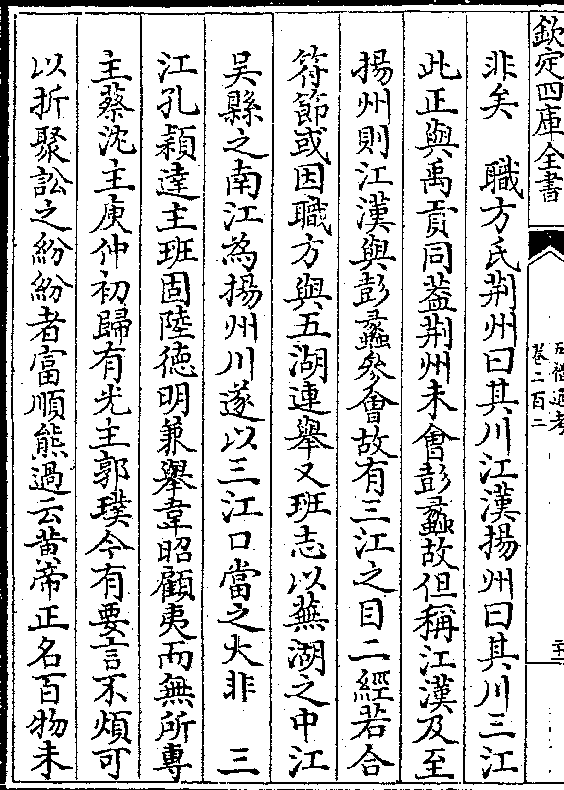 欽定四庫全書
五禮通考
卷二百二
非矣　職方氏荆州曰其川江漢揚州曰其川三江
此正與禹貢同葢荆州未會彭蠡故但稱江漢及至
揚州則江漢與彭蠡參會故有三江之目二經若合
符節或因職方與五湖連舉又班志以蕪湖之中江
吳縣之南江為揚州川遂以三江口當之大非　三
江孔穎達主班固陸德明兼舉韋昭顧夷而無所專
主蔡沈主庾仲初歸有光主郭璞今有要言不煩可
以折聚訟之紛紛者富順熊過云黄帝正名百物未